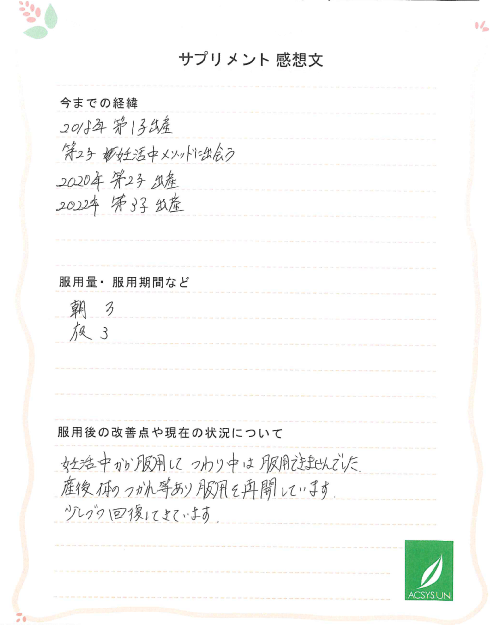 サプリメント 感想文
今までの経緯
2018年 第1子出産
第2子 妊活中メソッドに出会う
2020年 第2子 出産
2022年 第3子 出産
服用量・服用期間など
朝 3
夜 3
服用後の改善点や現在の状況について
妊活中から服用して つわり中は 服用できませんでした.
産後 体の つかれ等あり 服用を再開しています.
少しづつ回復してきています.
ACSYSUN